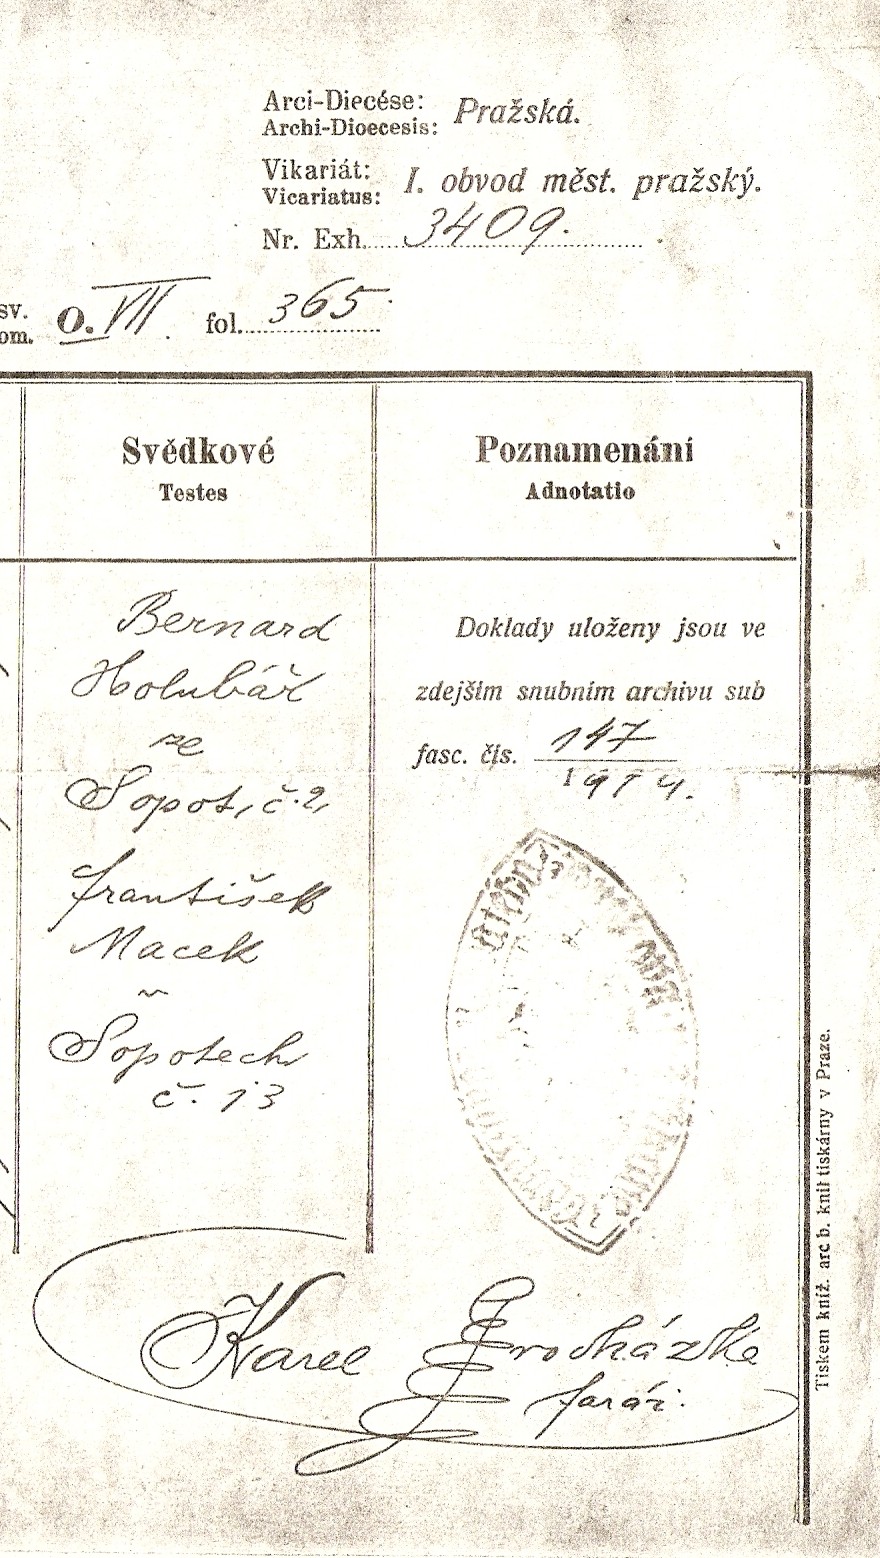 Arci-Diecése: Pražská.
Archi-Dioecesis:
Vikariát: I. obvod měst. pražský.
Vicariatus:
Nr. Exh. 3409.
sv. O. VII fol. 365.
om.
Svědkové
Testes
Poznamenání
Adnotatio
Bernard
Holubář
ze
Sopot, č. 2,
František
Macek
v
Sopotech
č. 13
Doklady uloženy jsou ve
zdejším snubním archivu sub
fasc. čís. 147
1914.
Karel Procházka
farář.
Tiskem kníž. arc b. knil tiskárny v Praze.